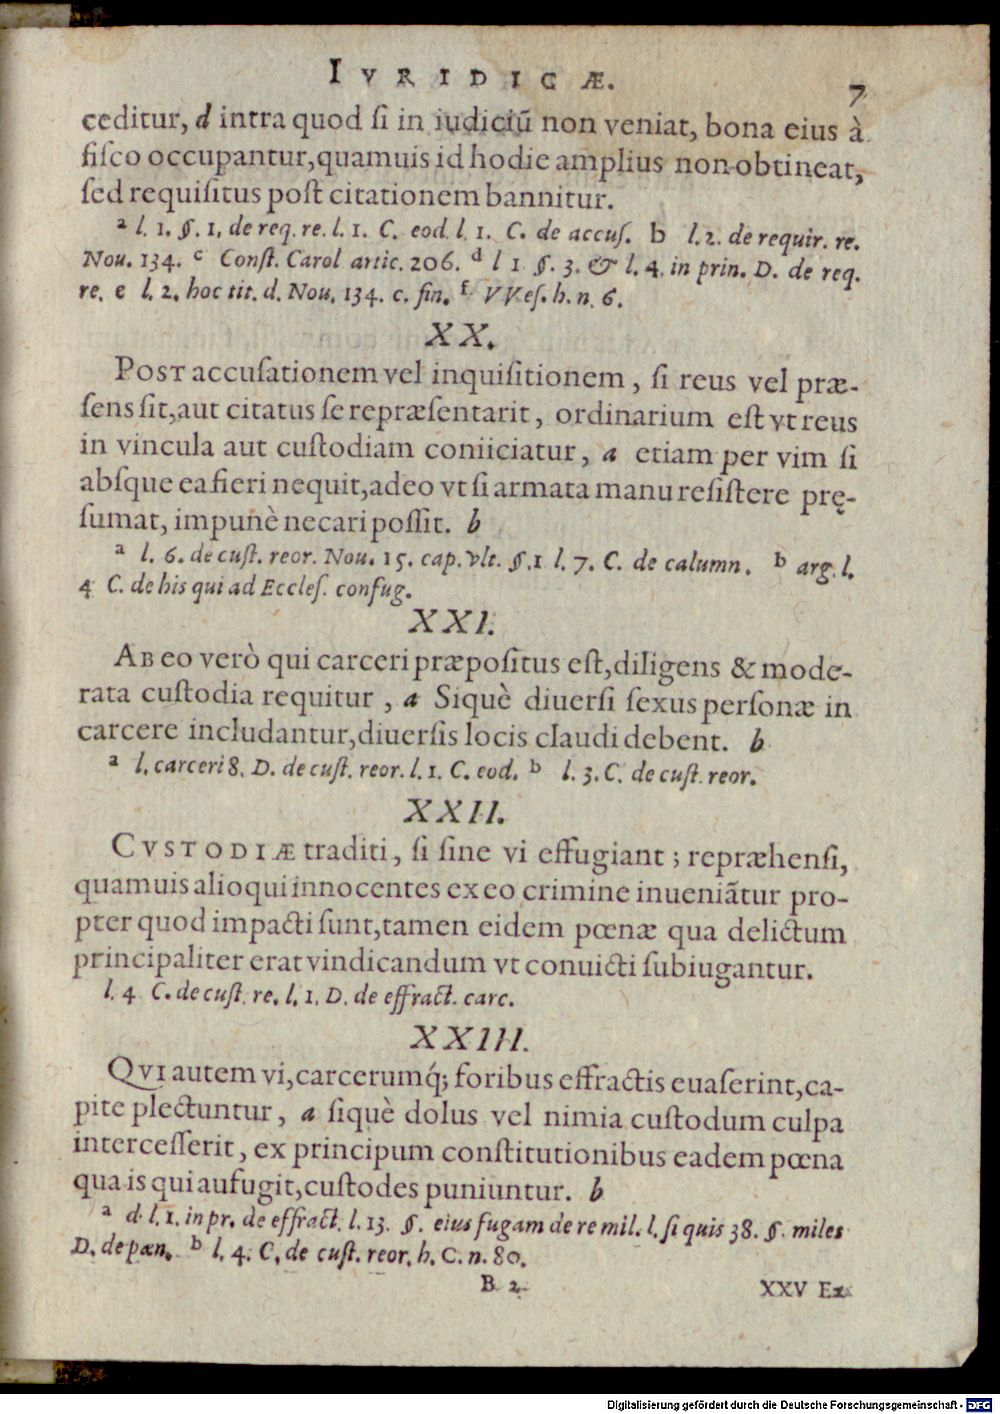 IVRIDICÆ.
7
ceditur, d intra quod ſi in iudiciũ non veniat, bona eius à
fiſco occupantur, quamuis id hodie amplius non obtineat,
ſed requiſitus poſt citationem bannitur.
a l. 1. §. 1. de req. re. l. 1. C. eod. l. 1. C. de accuſ. b l. 2. de requir. re.
Nou. 134. c Conſt. Carol artic. 206. d l 1 §. 3. & l. 4. in prin. D. de req.
re. e l. 2. hoc tit. d. Nou. 134. c. fin. f VVeſ. h. n. 6.
XX.
POST accuſationem vel inquiſitionem, ſi reus vel præ-
ſens ſit, aut citatus ſe repræſentarit, ordinarium eſt vt reus
in vincula aut cuſtodiam coniiciatur, a etiam per vim ſi
abſque ea fieri nequit, adeo vt ſi armata manu reſiſtere prę-
ſumat, impunè necari poſſit. b
a l. 6. de cuſt. reor. Nou. 15. cap. vlt. §.1 l. 7. C. de calumn. b arg. l.
4 C. de his qui ad Eccleſ. confug.
XXI.
AB eo verò qui carceri præpoſitus eſt, diligens & mode-
rata cuſtodia requitur, a Siquè diuerſi ſexus perſonæ in
carcere includantur, diuerſis locis claudi debent. b
a l. carceri 8. D. de cuſt. reor. l. 1. C. eod. b l. 3. C. de cuſt. reor.
XXII.
CVSTODIÆ traditi, ſi ſine vi effugiant; repræhenſi,
quamuis alioqui innocentes ex eo crimine inueniãtur pro-
pter quod impacti ſunt, tamen eidem pœnæ qua delictum
principaliter erat vindicandum vt conuicti ſubiugantur.
l. 4 C. de cuſt. re. l. 1. D. de effract. carc.
XXIII.
QVI autem vi, carcerumq́; foribus effractis euaſerint, ca-
pite plectuntur, a ſiquè dolus vel nimia cuſtodum culpa
interceſſerit, ex principum conſtitutionibus eadem pœna
qua is qui aufugit, cuſtodes puniuntur. b
a d. l. 1. in pr. de effract. l. 13. §. eius fugam de re mil. l. ſi quis 38. §. miles
D. de pæn. b l. 4. C. de cuſt. reor. h. C. n. 80.
B 2
XXV Ex
Digitalisierung gefördert durch die Deutsche Forschungsgemeinschaft - DFG